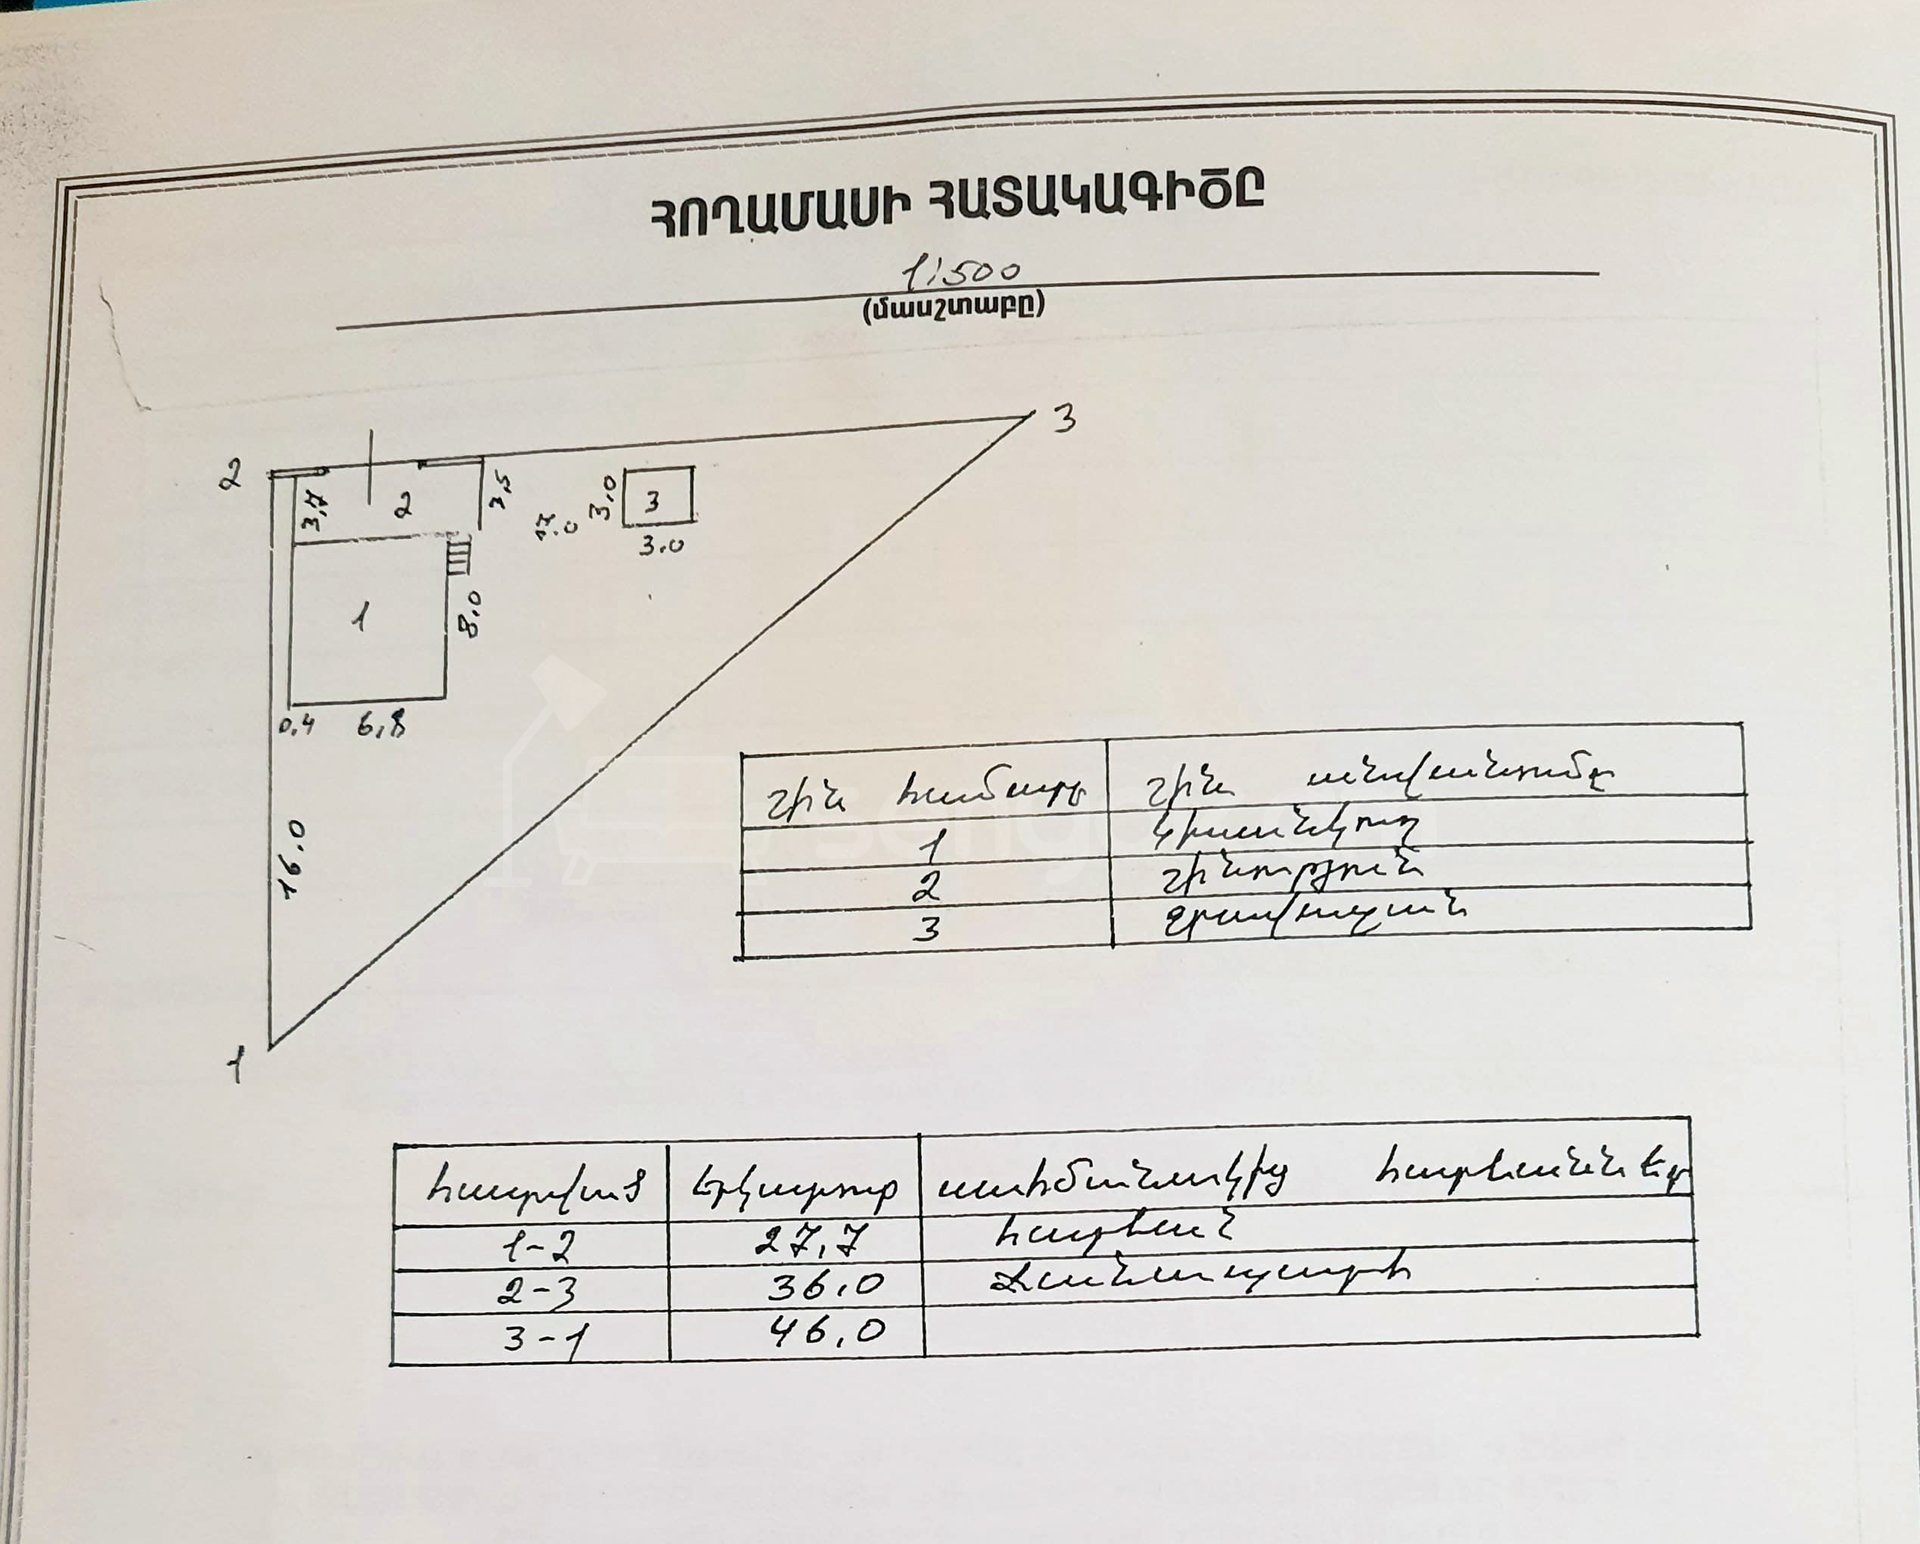 ՀՈՂԱՄԱՍԻ ՀԱՏԱԿԱԳԻԾԸ
1:500
(մասշտաբը)
3
2
3,7
2
3,5
7.0
3,0
3
3.0
1
8,0
0,4
6,8
16.0
1
շին համարը շին անվանումը
1 կիսանկուղ
2 շինություն
3 ջրավազան
հատված երկարութ սահմանակից հարևաններ
1-2 27,7 հարևան
2-3 36,0 Ճանապարհ
3-1 46,0